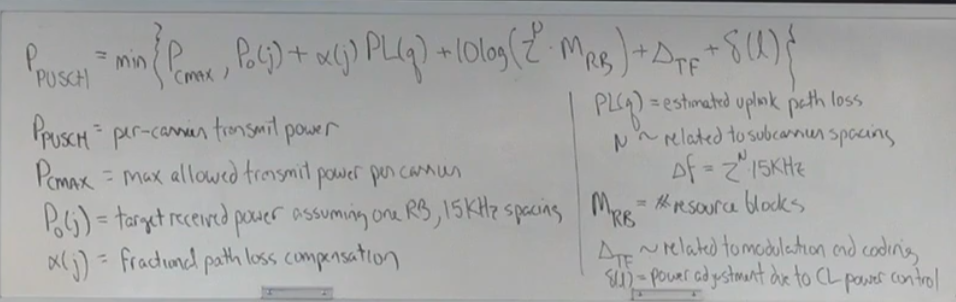 P_PUSCH = min{P_CMAX, P₀(j) + α(j) PL(q) + 10log(2^μ · M_RB) + Δ_TF + δ(l)}
P_PUSCH = per-carrier transmit power
P_CMAX = max allowed transmit power per carrier
P₀(j) = target received power assuming one RB, 15KHz spacing
α(j) = fractional path loss compensation
PL(q) = estimated uplink path loss
μ ~ related to subcarrier spacing
Δf = 2^μ·15KHz
M_RB = # resource blocks
Δ_TF ~ related to modulation and coding
δ(l) = power adjustment due to CL power control